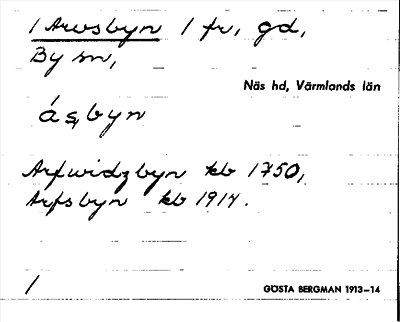 1 Arvsbyn 1 fr, gd,
By sn,
Näs hd, Värmlands län
ásbyn
Arfwidzbyn kb 1750,
Arfsbyn kb 1914.
1
GÖSTA BERGMAN 1913–14